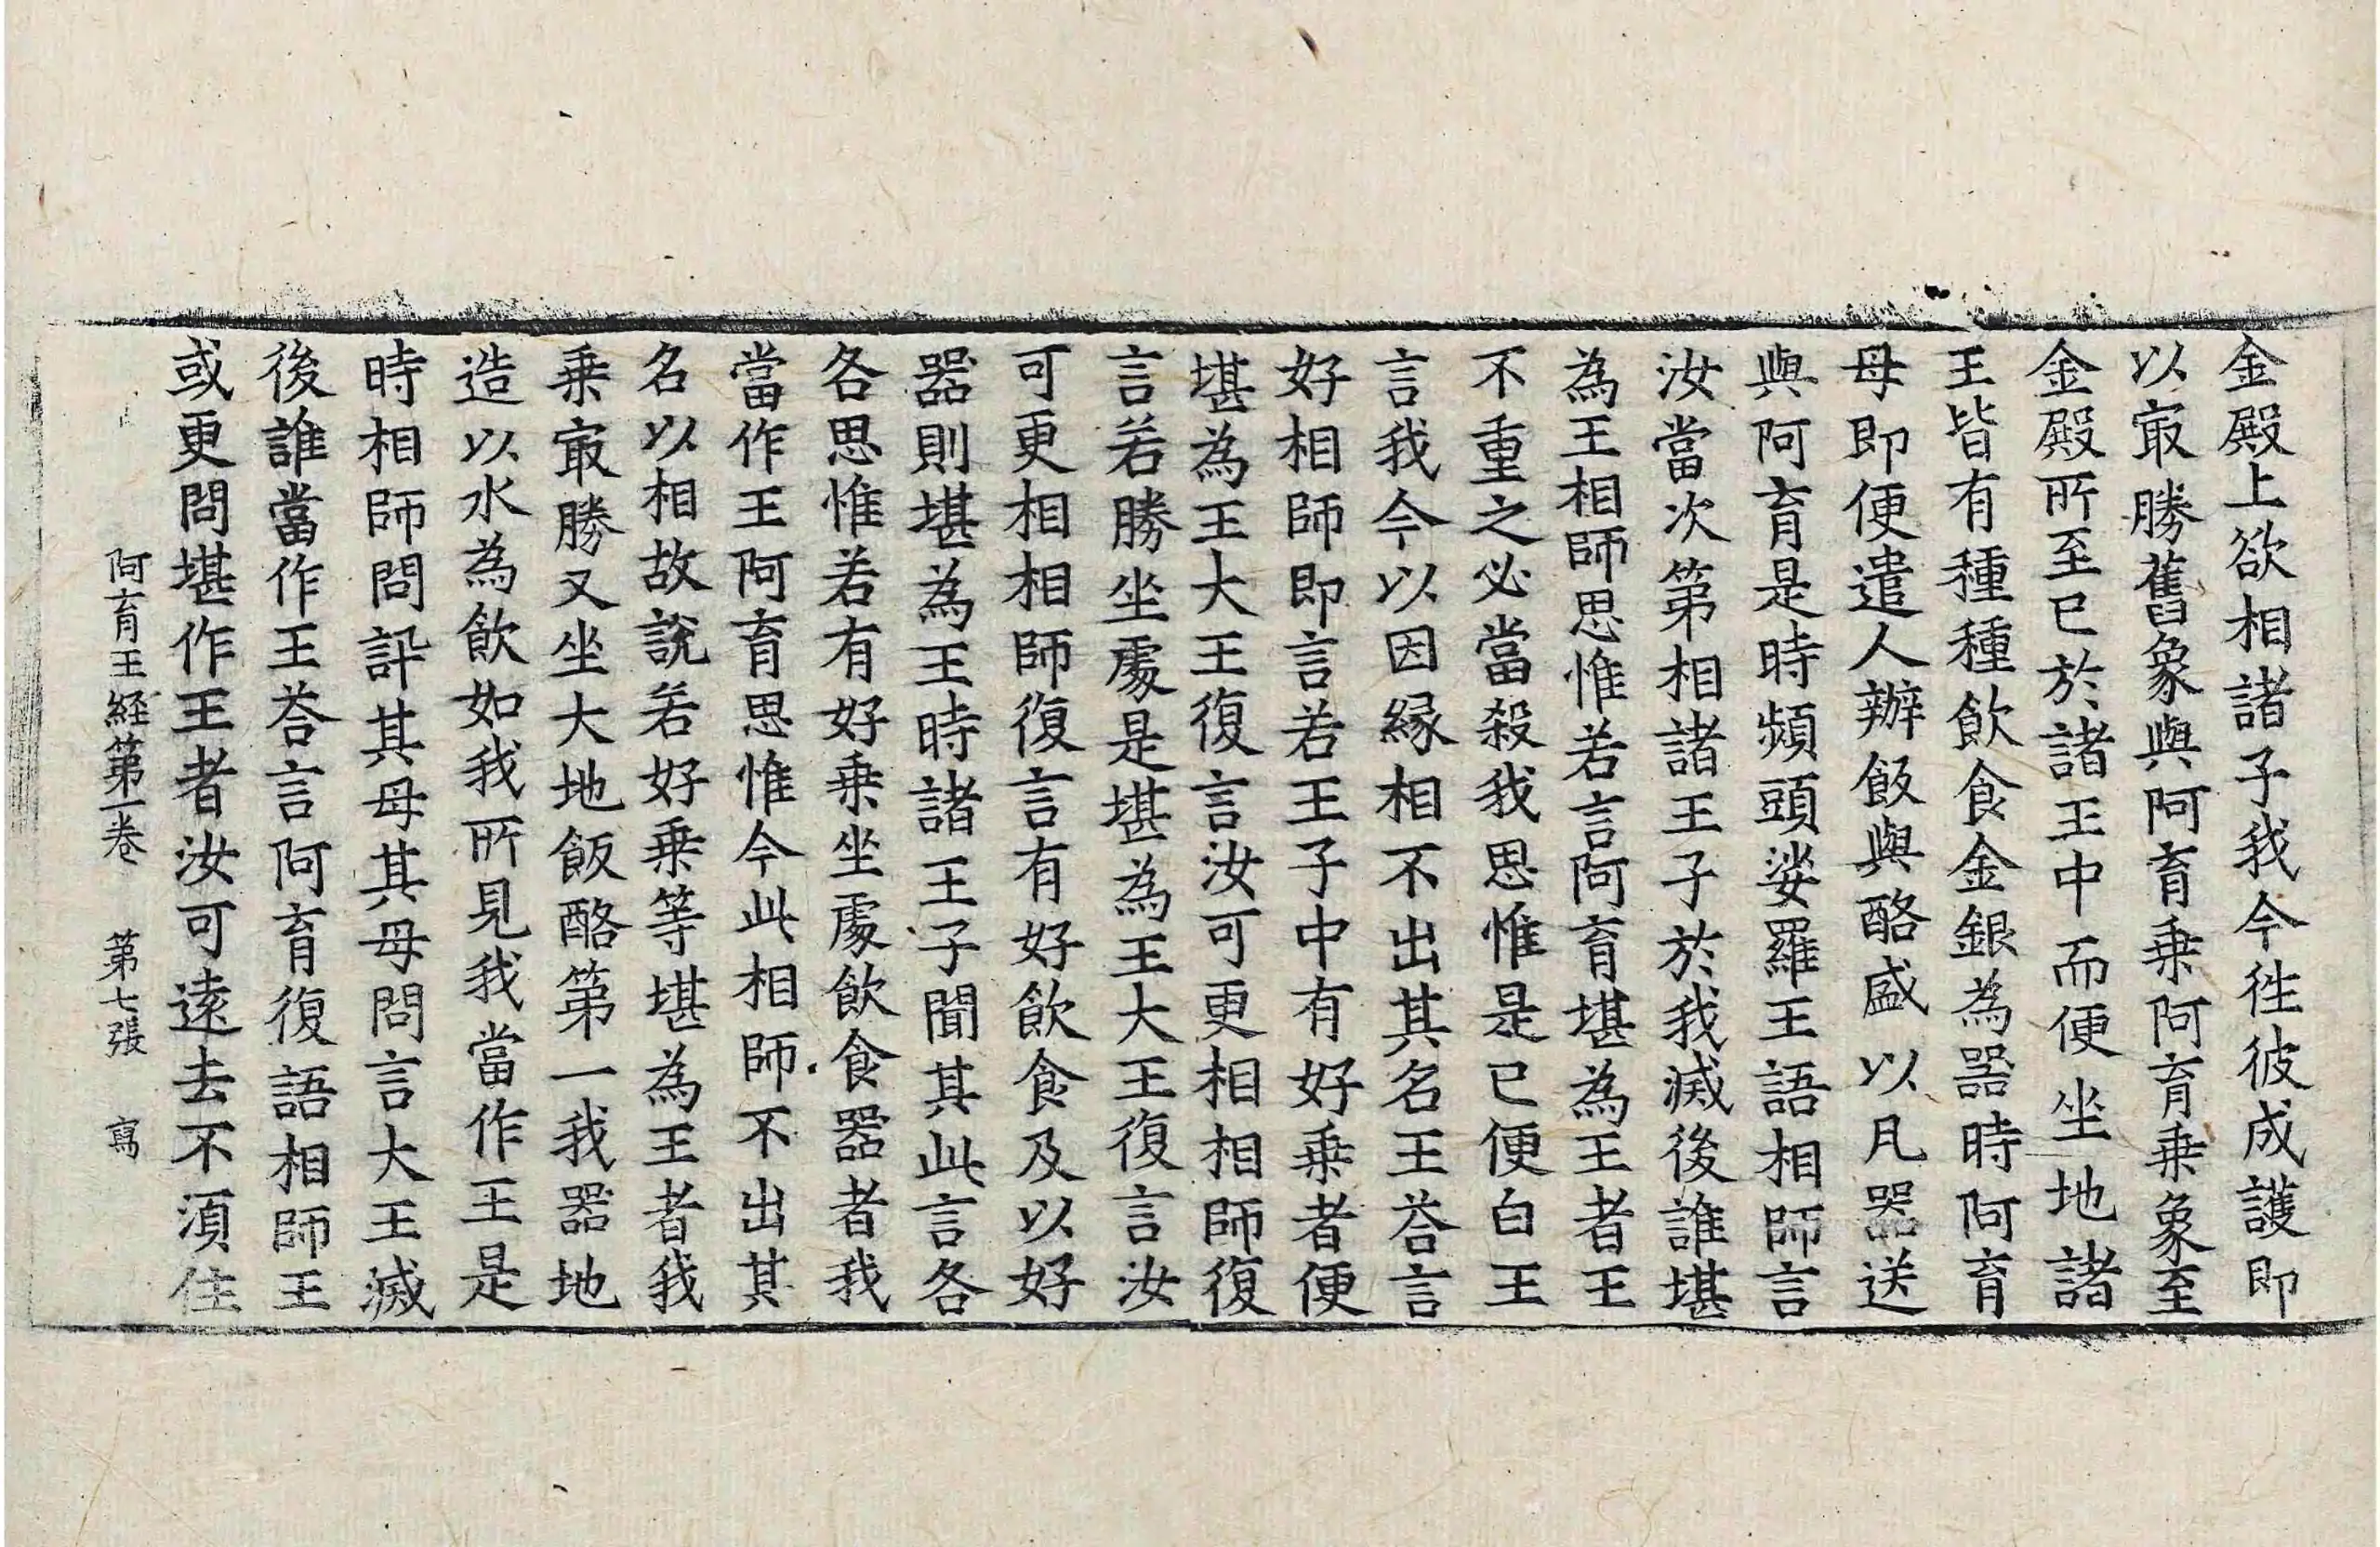 金殿上欲相諸子我今徃彼成護即
以㝡勝舊象與阿育乗阿育乗象至
金殿所至已於諸王中而便坐地諸
王皆有種種飲食金銀為器時阿育
母即便遣人辦飯與酪盛以凡器送
與阿育是時頻頭娑羅王語相師言
汝當次第相諸王子於我滅後誰堪
為王相師思惟若言阿育堪為王者王
不重之必當殺我思惟是已便白王
言我今以因縁相不出其名王荅言
好相師即言若王子中有好乗者便
堪為王大王復言汝可更相相師復
言若勝坐處是堪為王大王復言汝
可更相相師復言有好飲食及以好
器則堪為王時諸王子聞其此言各
各思惟若有好乗坐處飲食器者我
當作王阿育思惟今此相師不出其
名以相故說若好乗等堪為王者我
乗㝡勝又坐大地飯酪第一我器地
造以水為飲如我所見我當作王是
時相師問訊其母其母問言大王滅
後誰當作王荅言阿育復語相師王
或更問堪作王者汝可遠去不須住
阿育王経第一卷 第七張 寫